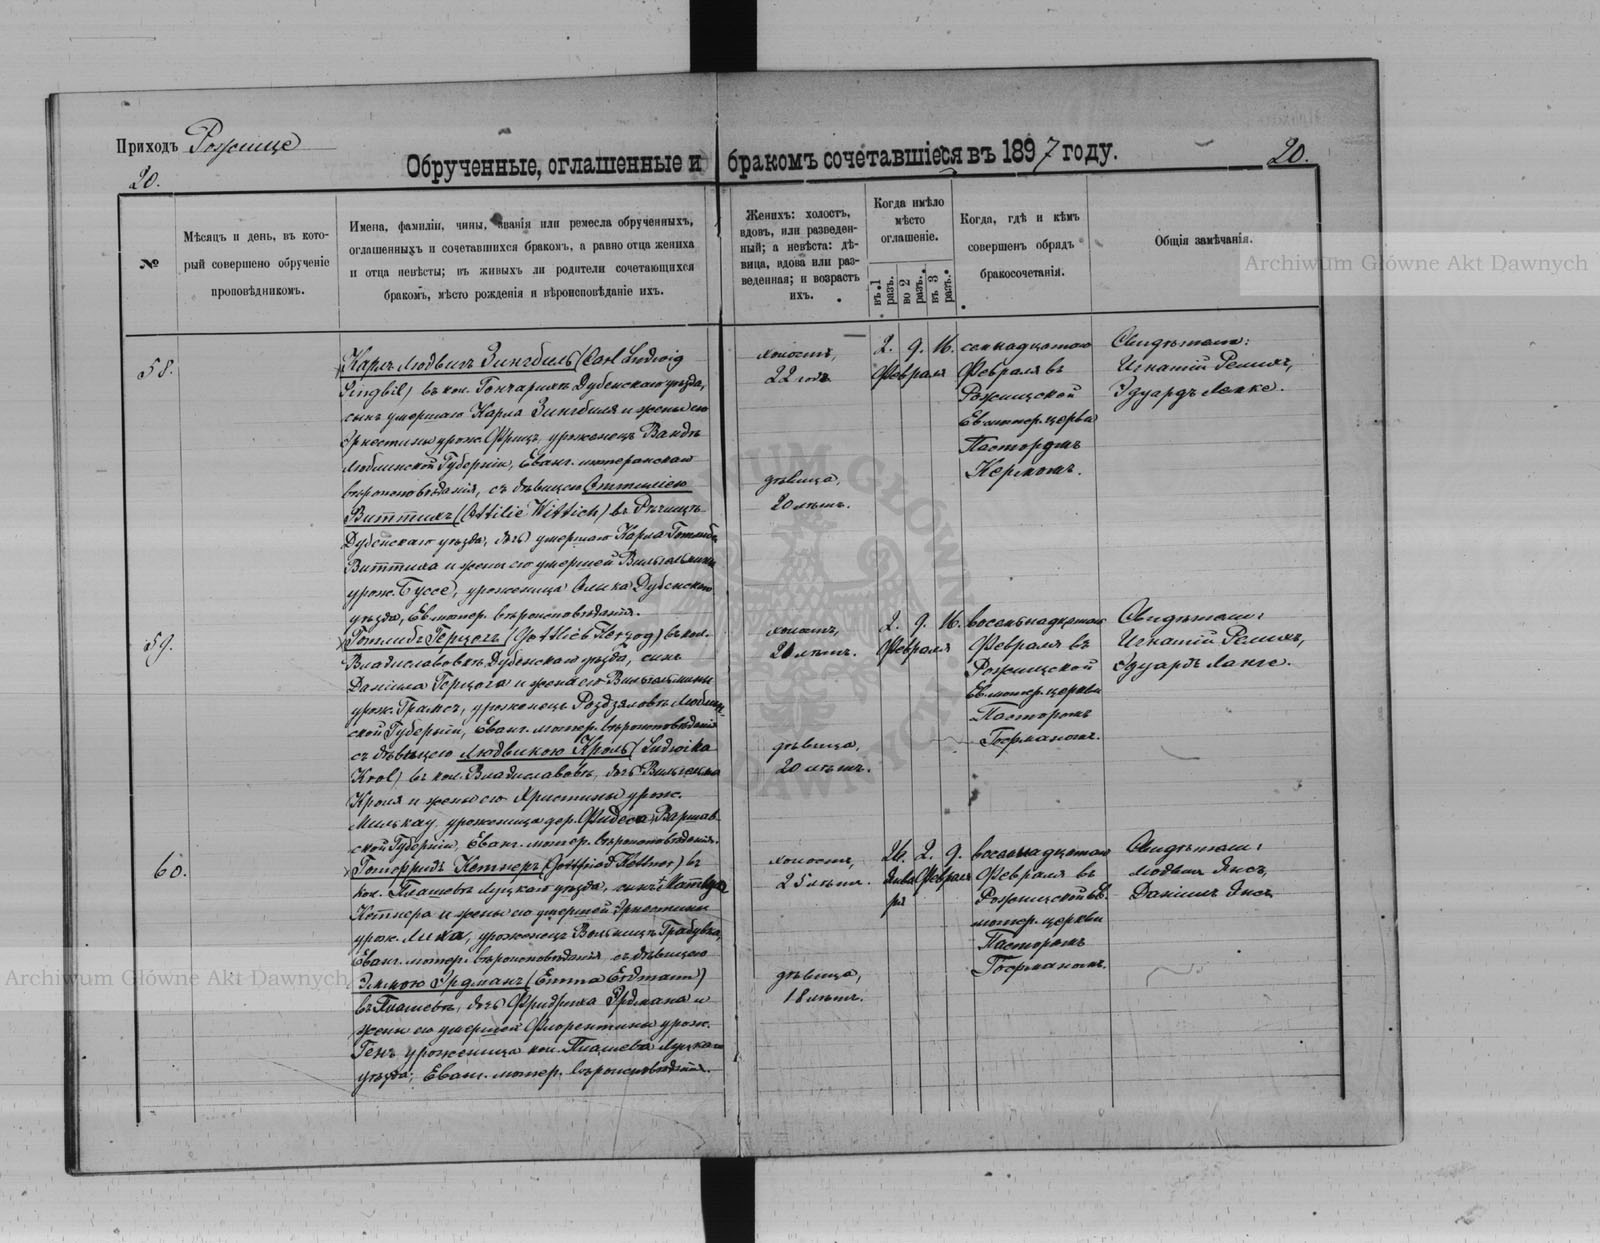 Приходъ Рожище
Обрученные, оглашенные и бракомъ сочетавшіеся въ 1897 году.
20.
20.
№
Мѣсяцъ и день, въ кото-
рый совершено обрученіе
проповѣдникомъ.
Имена, фамиліи, чины, званія или ремесла обрученныхъ,
оглашенныхъ и сочетавшихся бракомъ, а равно отца жениха
и отца невѣсты; въ живыхъ ли родители сочетающихся
бракомъ, мѣсто рожденія и вѣроисповѣданіе ихъ.
Женихъ: холостъ,
вдовъ, или разведен-
ный; а невѣста: дѣ-
вица, вдова или раз-
веденная; и возрастъ
ихъ.
Когда имѣло
мѣсто
оглашеніе.
въ 1
разъ.
во 2
разъ.
въ 3
разъ.
Когда, гдѣ и кѣмъ
совершенъ обрядъ
бракосочетанія.
Общія замѣчанія.
Archiwum Główne Akt Dawnych
58.
Карлъ Людвигъ Зингбиль (Carl Ludwig
Singbil) въ кол. Гончарихъ Дубенскаго уѣзда,
сынъ умершаго Карла Зингбиля и жены его
Эрнестины урож. Фрицъ, уроженецъ Вандъ
Люблинской Губерніи, Еванг. лютеранскаго
вѣроисповѣданія, съ дѣвицею Оттиліею
Виттихъ (Ottilie Wittich) въ
Дубенскаго уѣзда, дочь умершаго Карла Готлиба
Виттиха и жены его умершей Вильгельмины
урож. Буссе, уроженица Олыка Дубенскаго
уѣзда, Ев. лютер. вѣроисповѣданія.
холостъ,
22 годъ
дѣвица,
20 лѣтъ.
2. 9. 16.
Февраля
семнадцатаго
Февраля въ
Рожищской
Ев. лютер. церкви
Пасторомъ
Кермомъ.
Свидѣтели:
Игнатій Ремихъ,
Эдуардъ Ланге.
59.
Готлибъ Герцогъ (Gottlieb Herzog) въ кол.
Владиславовкѣ Дубенскаго уѣзда, сынъ
Даніила Герцога и жены его Вильгельмины
урож. Грамсъ, уроженецъ Роздзяловъ Люблин-
ской Губерніи, Еванг. лютер. вѣроисповѣданія
съ дѣвицею Людвикою Кроль (Ludwika
Krol) въ кол. Владиславовкѣ, дочь Вильгельма
Кроля и жены его Христины урож.
Милькау, уроженица дер. Фидеса, Варшав-
ской Губерніи, Еванг. лютер. вѣроисповѣданія.
холостъ,
21 лѣтъ.
дѣвица,
20 лѣтъ.
2. 9. 16.
Февраля
восемнадцатаго
Февраля въ
Рожищской
Ев. лютер. церкви
Пасторомъ
Госрманомъ.
Свидѣтели:
Игнатій Ремихъ,
Эдуардъ Ланге.
60.
Готфридъ Кетнеръ (Gottfried Kettner) въ
кол. Плашевъ Луцкаго уѣзда, сынъ Матвѣя
Кетнера и жены его умершей Эрнестины
урож. Лиха, уроженецъ Грабувка,
Еванг. лютер. вѣроисповѣданія, съ дѣвицею
Эммою Эрдманъ (Emma Erdmann)
въ Плашевѣ, дочь Фридриха Эрдмана и
жены его умершей Флорентины урож.
Генъ уроженица кол. Плашева Луцкаго
уѣзда; Еванг. лютер. вѣроисповѣданія.
холостъ,
25 лѣтъ.
дѣвица,
18 лѣтъ.
26. 2. 9.
Января Февраля
восемнадцатаго
Февраля въ
Рожищской Ев.
лютер. церкви
Пасторомъ
Госрманомъ.
Свидѣтели:
Людвигъ Янсъ,
Даніилъ Янсъ
Archiwum Główne Akt Dawnych